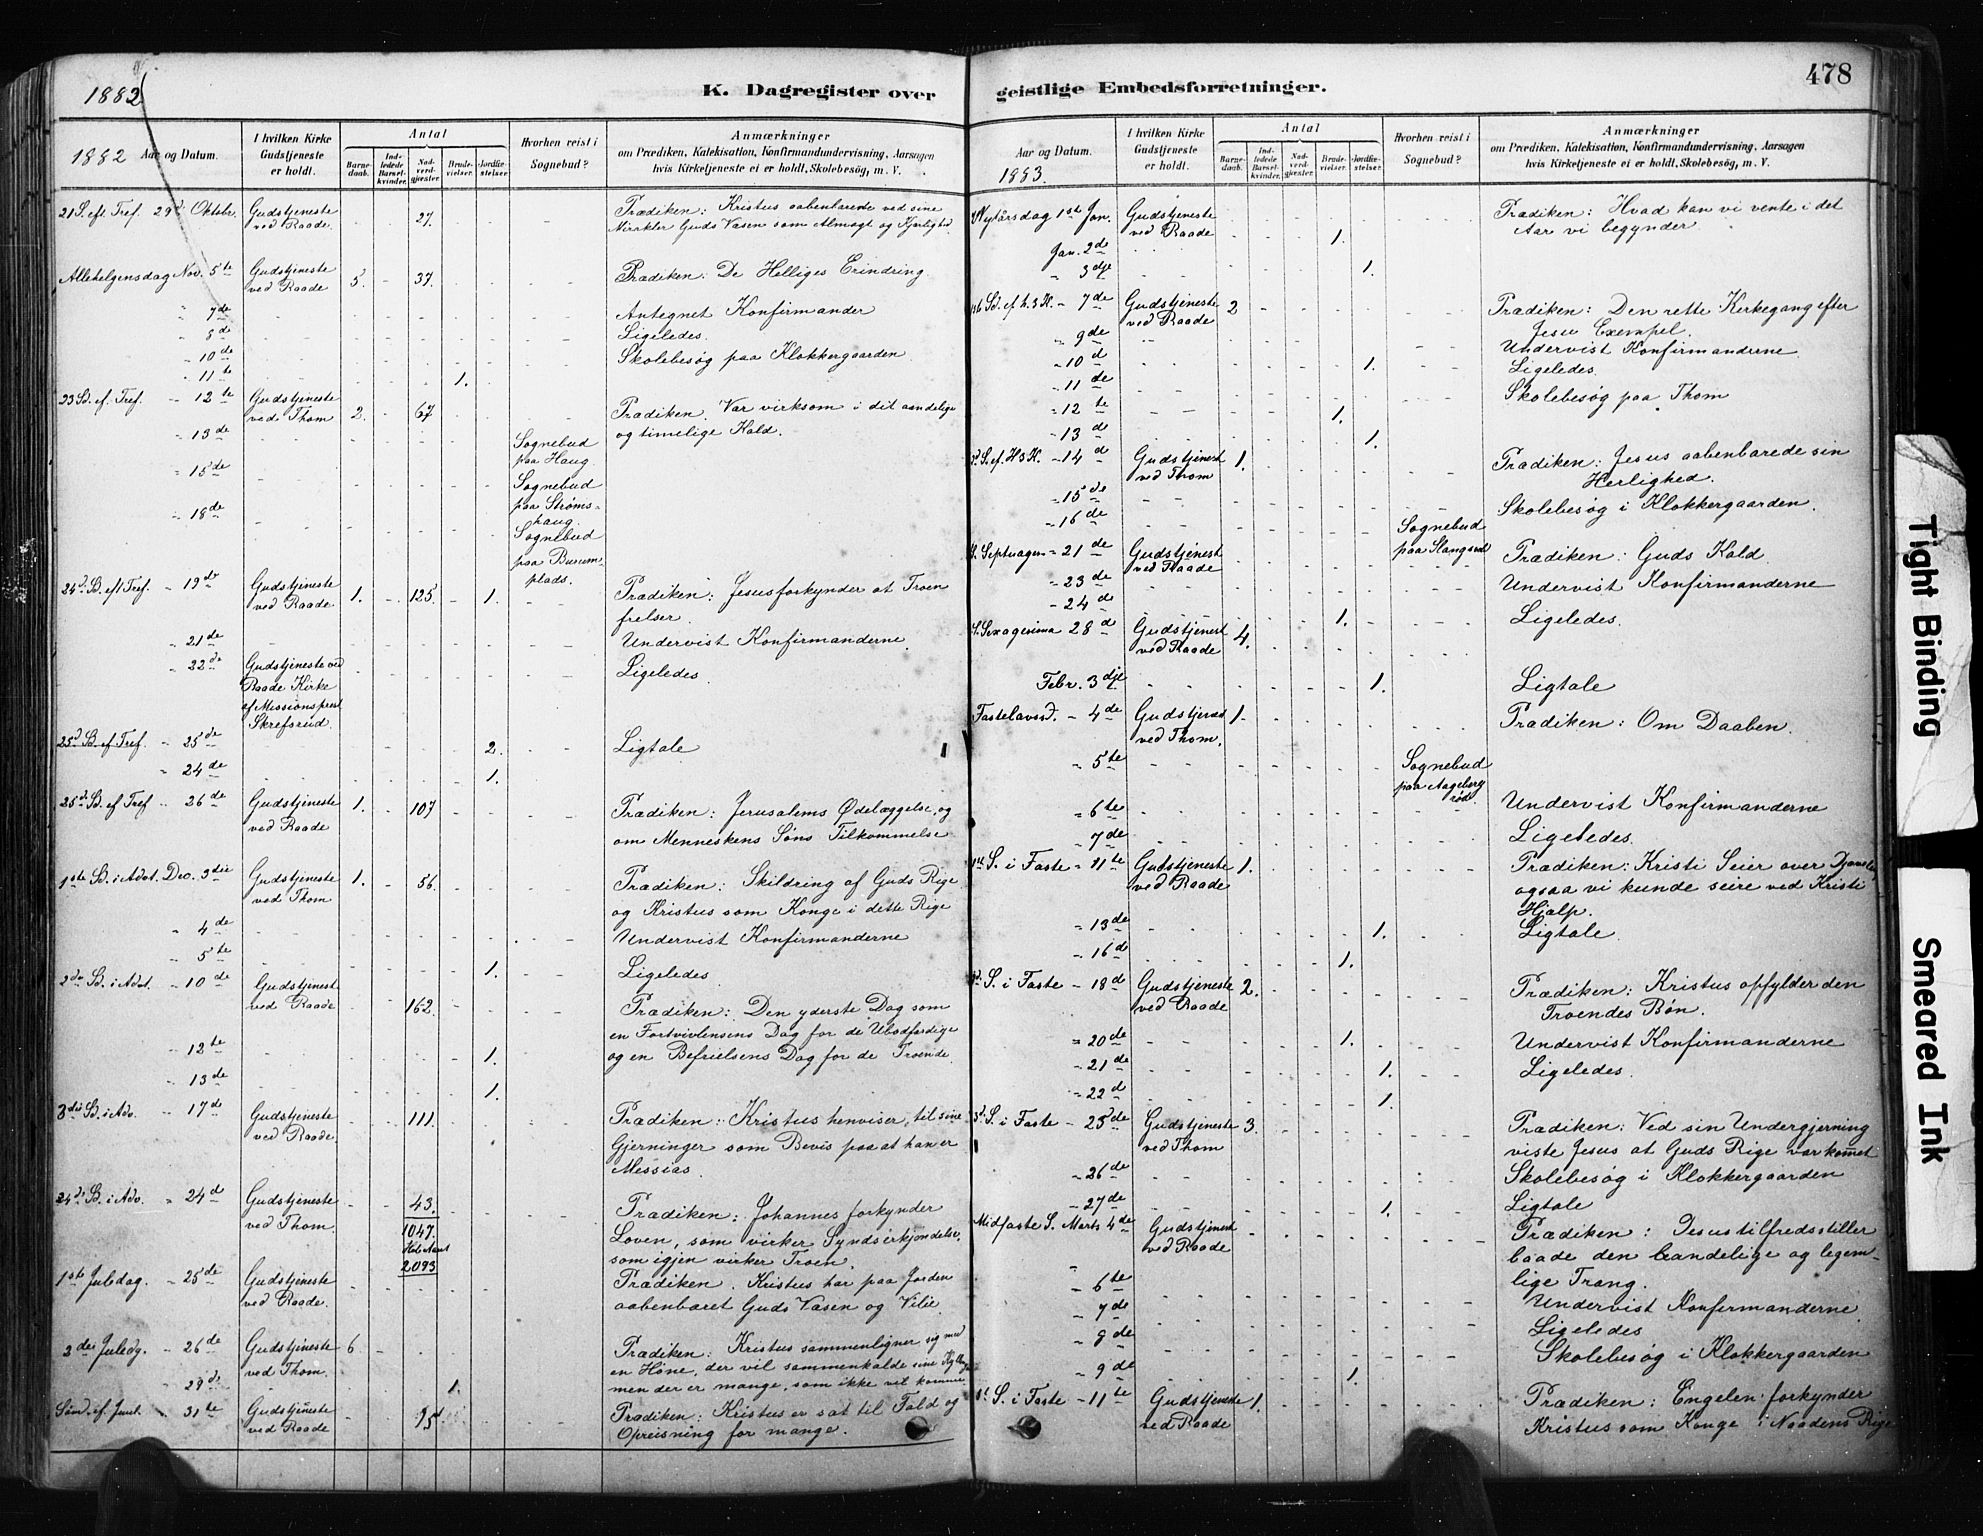 1882
K. Dagregister over
1882 Aar og Datum.
I hvilken Kirke Gudstjeneste er holdt.
Antal
Barnedaab.
Indledede Barselkvinder.
Nadverdgjester.
Brudevielser.
Jordfæstelser.
Hvorhen reist i Sognebud?
Anmærkninger
om Prædiken, Katekisation, Konfirmandundervisning, Aarsagen
hvis Kirketjeneste ei er holdt, Skolebesög, m. V.
21 S. eft. Tref. 29d Oktobr. Gudstjeneste ved Raade. - - 27. Prædiken: Kristus aabenbarede ved sine
Mirakler Guds Væsen som Almagt og Kjærlighed.
Allehelgensdag Nov. 5te Gudstjeneste ved Raade 5. - 37. Prædiken: De Helliges Erindring.
" 7de Antegnet Konfirmander
" 8de Ligeledes.
" 10de Skolebesøg paa Klokkergaarden
" 11te 1.
23 Sd. ef. Tref. " 12te Gudstjeneste ved Thom 2. - 67 Prædiken. Vær virksom i dit aandelige
og timelige Kald.
" 13de Sognebud paa Haug.
" 15de Sognebud paa Strømshaug.
" 18de Sognebud paa plads.
24d S. eft Tref. " 19de Gudstjeneste ved Raade 1. - 125. - 1. Prædiken: Jesus forkynder at Troen
frelser.
" 21de Undervist Konfirmanderne.
" 22de Gudstjeneste ved Raade Kirke af Missionsprest Skrefsrud. Ligeledes.
25d S. ef Tref. " 25de 2. Ligtale
" 24de 1.
25d S. ef Tref " 26de Gudstjeneste ved Raade 1. - 107 Prædiken: Jerusalems Ødelæggelse, og
om Menneskens Søns Tilkommelse
1ste S. i Advt. Dec. 3die Gudstjeneste ved Thom 1. - 56. Prædiken: Skildring af Guds Rige
og Kristus som Konge i dette Rige
" 4de Undervist Konfirmanderne
" 5te 1. Ligeledes.
2den S. i Advt. " 10de Gudstjenest ved Raade 162. Prædiken: Den yderste Dag som
en Fortvivlensens Dag for de Ubodfærdige
og en Befrielsens Dag for de Troende.
" 12te 1.
" 13de 1.
3die S. i Adv. " 17de Gudstjeneste ved Raade. 111. Prædiken: Kristus henviser til sine
Gjerninger som Bevis paa at han er
Messias.
S. i Adv. " 24d Gudstjeneste ved Thom. 43. Prædiken: Johannes forkynder
1047. Loven, som virker Syndserkjendelse,
2093 som igjen virker Troen.
1ste Juledag. " 25de Gudstjeneste ved Raade. Prædiken. Kristus har paa Jorden
aabenbaret Guds Væsen og Vilie.
2den Juledg. " 26de Gudstjeneste ved Thom. 6 Prædiken: Kristus sammenligner sig med
en Höne, der vil sammenkalde sine
men der er mange, som ikke vil komme
" 29de 1.
Sönd. ef. Juul. " 31te Gudstjeneste ved Raade Prædiken: Kristus er sat til Fald og
Opreisning for mange.
geistlige Embedsforretninger.
478
Aar og Datum.
1883.
I hvilken Kirke Gudstjeneste er holdt.
Antal
Barnedaab.
Indledede Barselkvinder.
Nadverdgjester.
Brudevielser.
Jordfæstelser.
Hvorhen reist i Sognebud?
Anmærkninger
om Prædiken, Katekisation, Konfirmandundervisning, Aarsagen
hvis Kirketjeneste ei er holdt, Skolebesög, m. V.
Nytårsdag 1st Jan. Gudstjeneste ved Raade Prædiken: Hvad kan vi vente i det
Aar vi begynder
Jan. 2de 1.
" 3dje 1.
Sd. ef. h. 3 K. - 7de Gudstjeneste ved Raade 2 Prædiken: Den rette Kirkegang efter
Jesu Exempel.
" 9de Undervist Konfirmanderne
" 10d 1. Ligeledes.
" 11de Skolebesøg paa Thom
" 12te 1.
" 13de 1.
S. ef. H 3 K. - 14d Gudstjenest ved Thom 1. Prædiken: Jesus aabenbarede sin
Herlighed.
" 15de Skolebesøg i Klokkergaarden.
" 16de Sognebud paa Slangsrud
S. Septuagen " 21de Gudstjenest ved Raade Prædiken: Guds Kald
" 23de Undervist Konfirmanderne
" 24de 1. Ligeledes.
S. Sexagesima 28d Gudstjenest ved Raade 4.
Febr. 3dje 1. Ligtale
Fastelavnsd. - 4de Gudstjenest ved Thom. 1. Prædiken: Om Daaben.
" 5te Sognebud paa Aagebergrød.
" 6te Undervist Konfirmanderne
" 7de Ligeledes.
1ste S. i Faste " 11te Gudstjeneste ved Raade 1. Prædiken: Kristi Seier over
ogsaa vi kunde seire ved Kristi
Hjælp.
" 13de 1. Ligtale.
" 16de 1.
S. i Faste - 18d Gudstjeneste ved Raade 2. Prædiken: Kristus opfylder den
Troendes Bön.
" 20de 1. Undervist Konfirmanderne
" 21de 1. Ligeledes.
" 22d 1.
3d S. i Faste - 25de Gudstjeneste ved Thom 3. Prædiken: Ved sin Undergjerning
viste Jesus at Guds Rige var komet
" 26de Skolebesøg i Klokkergaarden
" 27de 1. Ligtale
Midfaste S. Marts 4de Gudstjenest ved Raade Prædiken: Jesus tilfredsstiller
baade den aandelige og legem-
lige Trang.
" 6te Undervist Konfirmanderne
" 7de Ligeledes
" 8de Skolebesøg i Klokkergaarden
" 9de 1.
S. i Faste - 11te Gudstjeneste ved Raade 1. Prædiken: Engelen forkynder
Kristus som Konge i Naadens Rige
Tight Binding
Smeared Ink